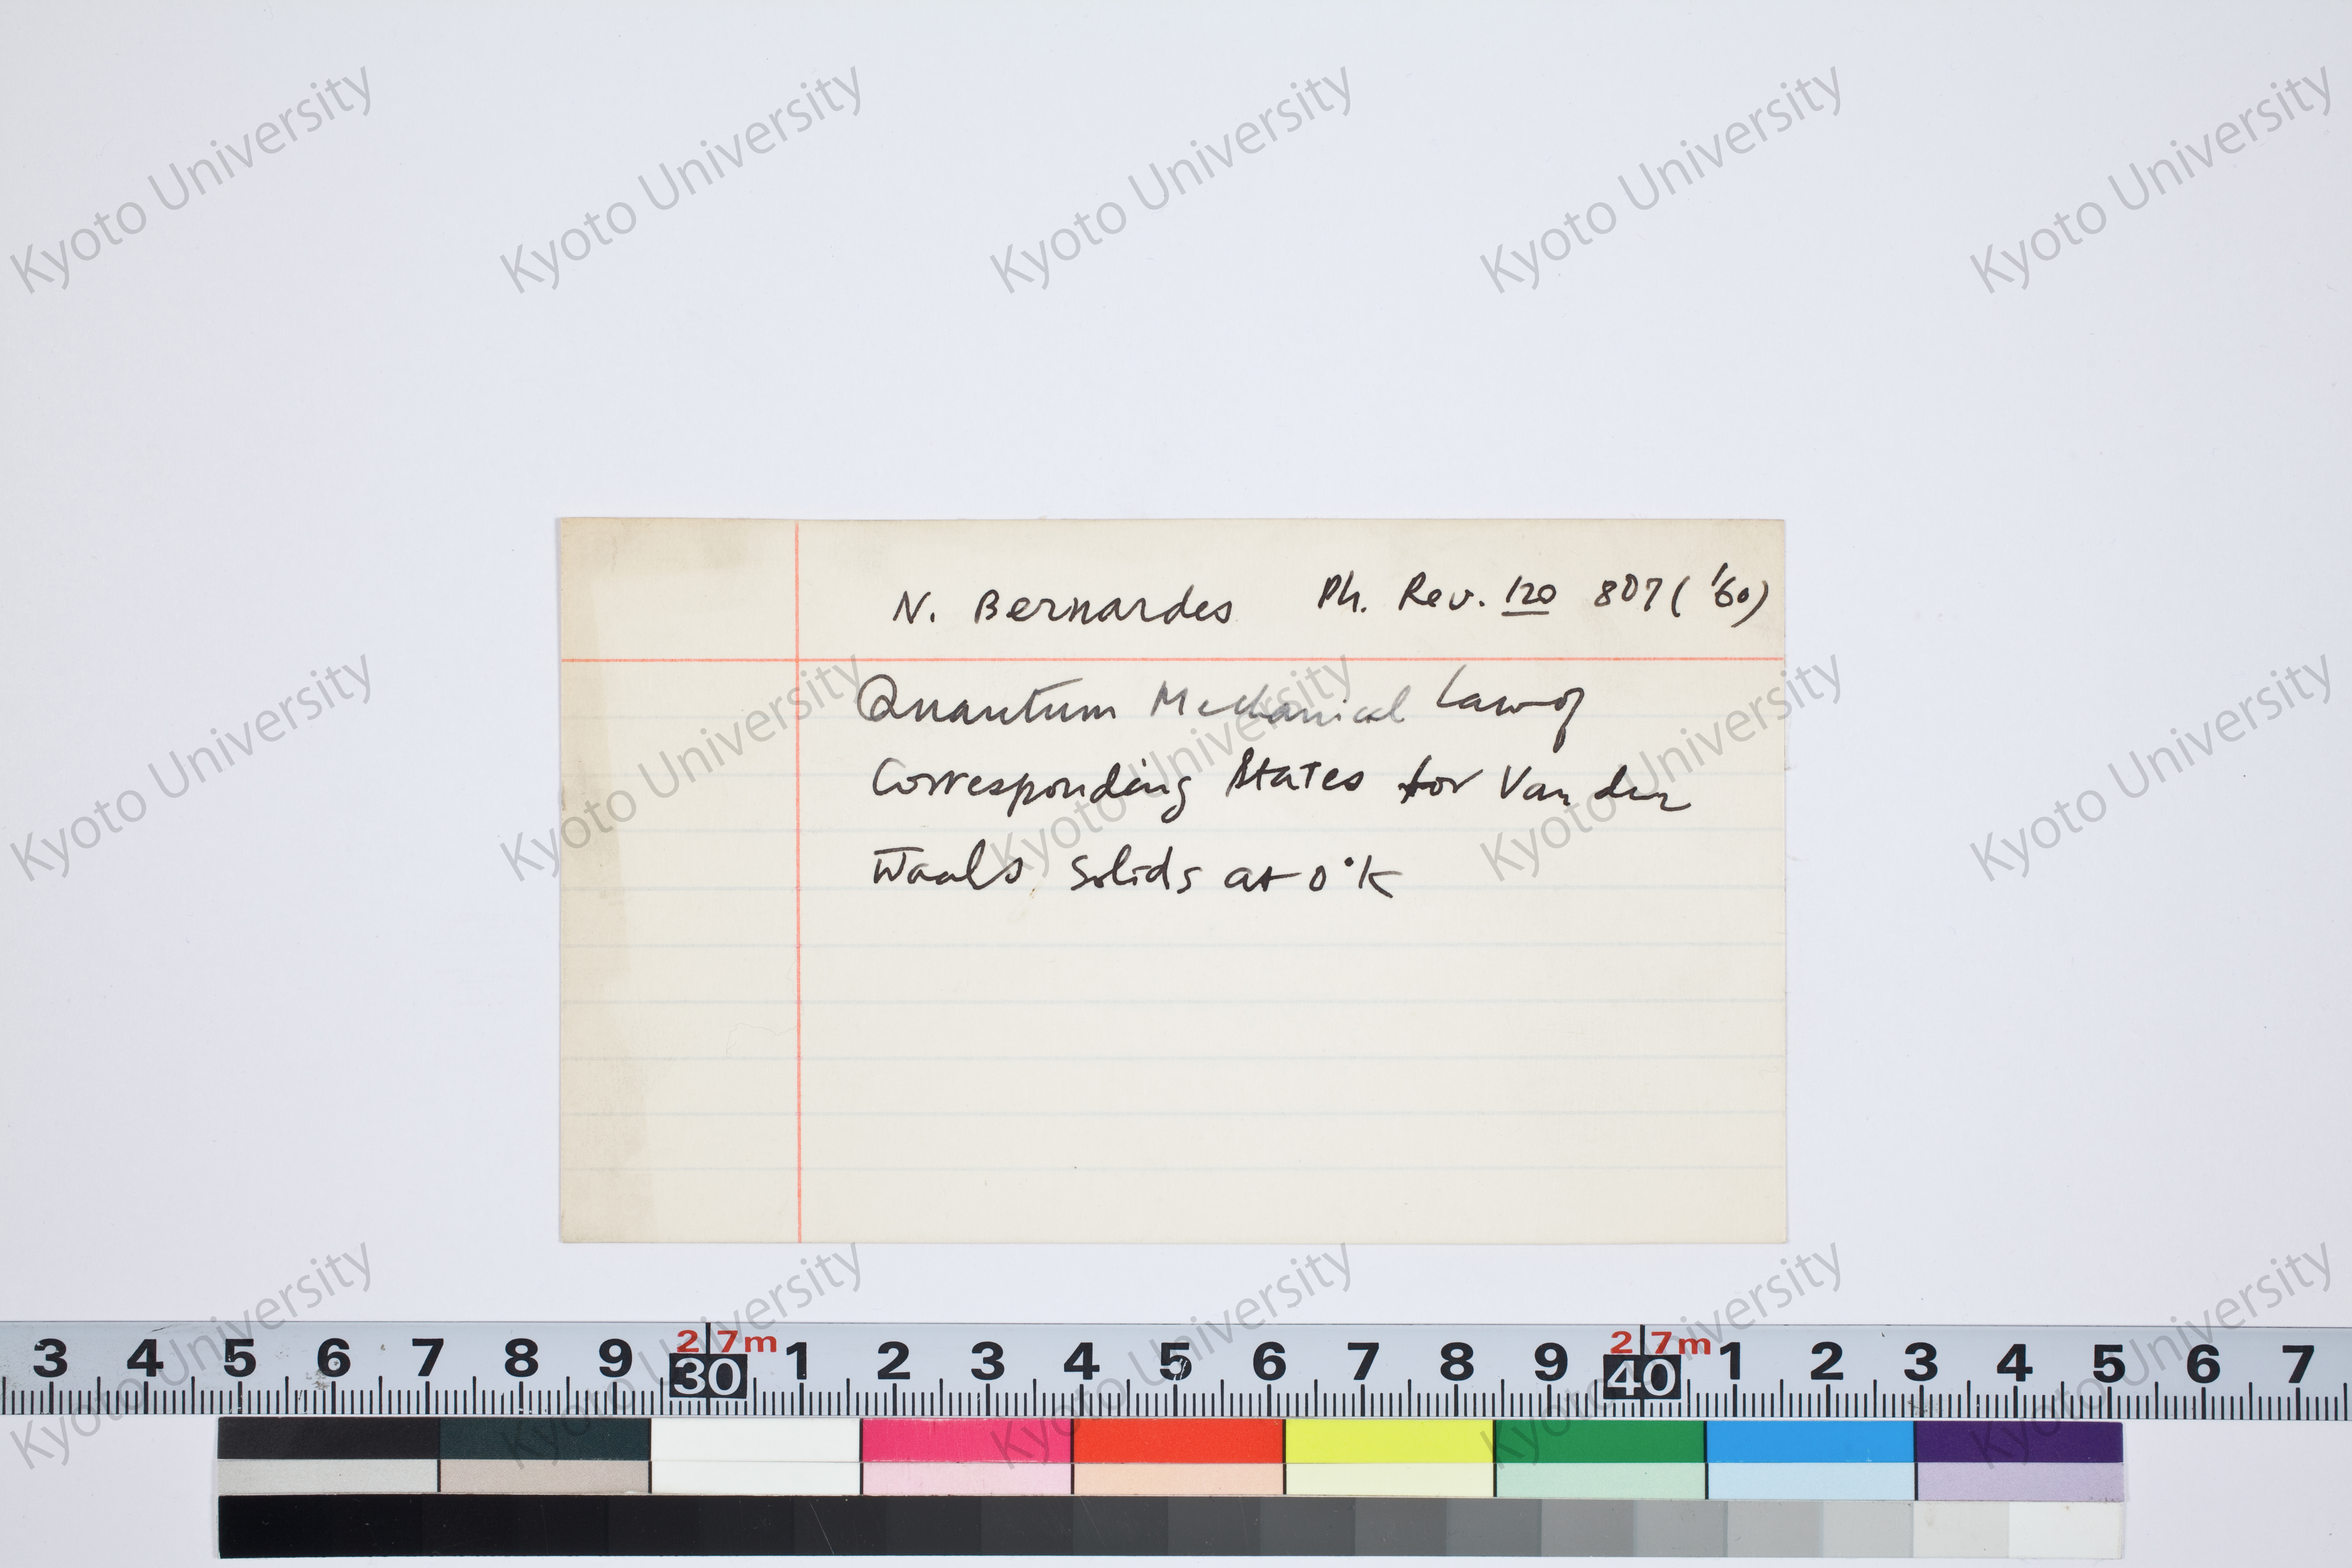 N. Bernardes Ph. Rev. 120 807 ('60)
Quantum Mechanical Law of
Corresponding States for Van der
Waals Solids at 0°K
Kyoto University Kyoto University Kyoto University Kyoto University Kyoto University
Kyoto University Kyoto University Kyoto University Kyoto University Kyoto University
Kyoto University Kyoto University Kyoto University Kyoto University Kyoto University
2.7m 2.7m
3 4 5 6 7 8 9 30 1 2 3 4 5 6 7 8 9 40 1 2 3 4 5 6 7